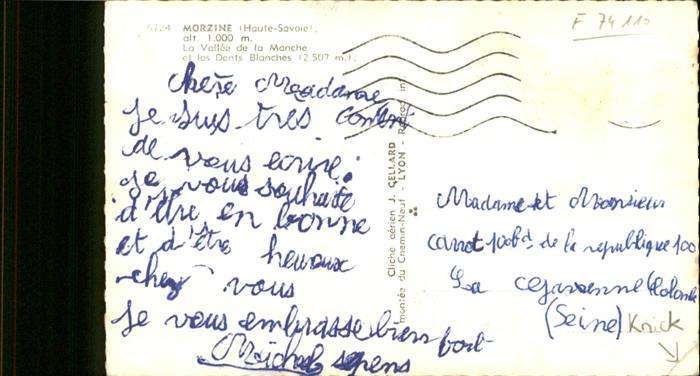 6724 MORZINE (Haute-Savoie)
alt. 1.000 m.
La Vallée de la Manche
et les Dents Blanches (2.507 m.)
F 74110
chère Madame
je suis très content
de vous ecrire.
je vous souhaite
d'être en bonne
et d'être heureux
chez vous
je vous embrasse bien fort
Michel
Cliché aérien J. CELLARD
montée du Chemin-Neuf - LYON - Reprod. in
Madame et Monsieur
carrot 100 bd de la republique 100
La Garenne Colombe
(Seine)
Knick